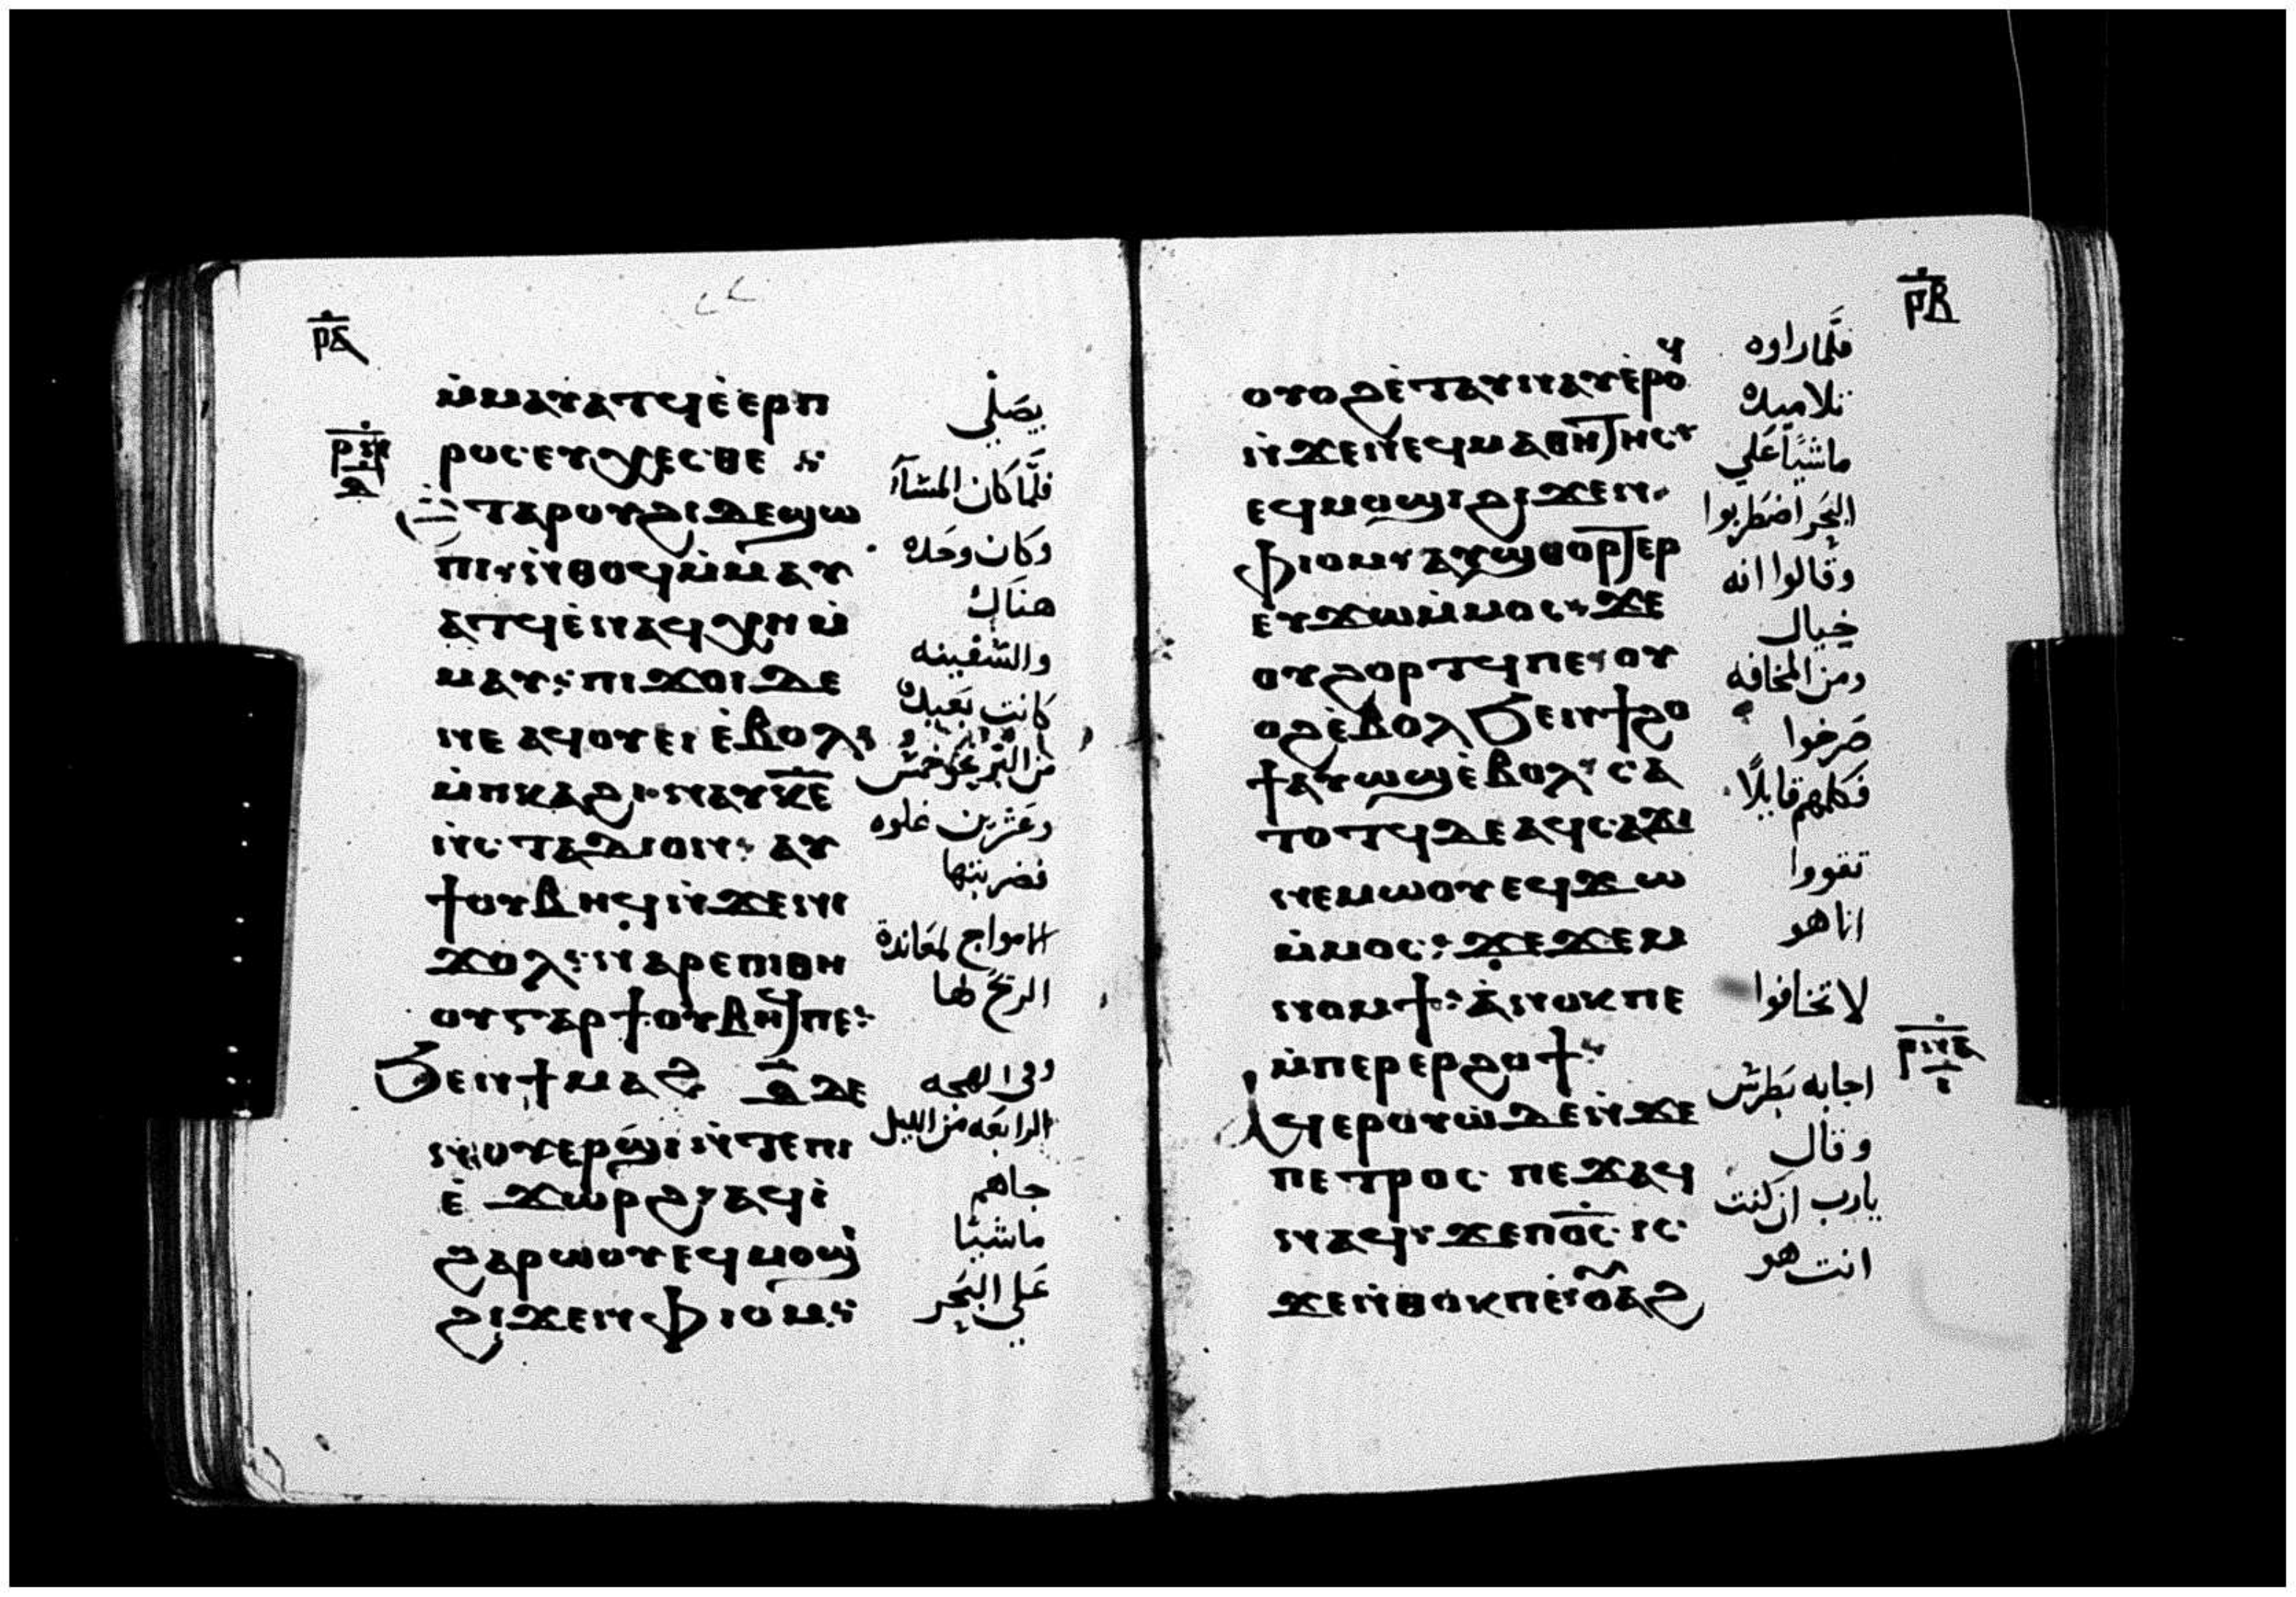 ⲣⲁ
ⲙ̇ⲙⲁⲩⲁⲧϥ ⲉ̇ⲉⲣⲡ
ⲣⲟⲥⲉⲩⲭⲉⲥⲑⲉ
ⲧⲁⲣⲟⲩϩⲓ ⲇⲉ ϣⲱ
ⲡⲓ ⲛ̇ⲑⲟϥ ⲙ̇ⲙⲁⲩ
ⲁⲧϥ ⲉ̇ⲛⲁϥⲭⲏ ⲙ̇
ⲙⲁⲩ: ⲡⲓϫⲟⲓ ⲇⲉ
ⲛⲉ ⲁϥⲟⲩⲉⲓ ⲉ̇ⲃⲟⲗ
ⲙ̇ⲡⲕⲁϩⲓ ⲛⲁⲩ ⲕ̅ⲉ̅
ⲛ̇ⲥⲧⲁⲇⲓⲟⲛ: ⲁⲩ
ϯⲟⲩⲃⲏϥ ⲛ̇ϫⲉⲛⲓ
ϫⲟⲗ: ⲛⲁⲣⲉ ⲡⲓⲑⲏ
ⲟⲩ ⲅⲁⲣ ϯⲟⲩⲃⲏϥ ⲡⲉ:
ϧⲉⲛ ϯⲙⲁϩ ⲇ̅ ⲇⲉ
ⲛ̇ⲟⲩⲉⲣϣⲓ ⲛ̇ⲧⲉ ⲡⲓ
ⲉ̇ϫⲱⲣϩ ⲁϥⲓ̇
ϩⲁⲣⲱⲟⲩ ⲉϥⲙⲟϣⲓ
ϩⲓϫⲉⲛ ⲫⲓⲟⲙ:
يصلي
فلما كان المسا
وكان وحده
هناك
والسفينه
كانت بعيده
من البر نحو خمس
وعشرين غلوه
فضربتها
الامواج لمعاندة
الريح لها
وفي الهجعه
الرابعه من الليل
جاهم
ماشيا
علي البحر
ⲣⲃ
ⲟⲩⲟϩ ⲉ̇ⲧⲁⲩⲛⲁⲩ ⲉ̇ⲣⲟϥ
ⲛ̇ϫⲉ ⲛⲉϥⲙⲁⲑⲏⲧⲏⲥ
ⲉϥⲙⲟϣⲓ ϩⲓϫⲉⲛ
ⲫⲓⲟⲙ ⲁⲩϣⲑⲟⲣⲧⲉⲣ
ⲉⲩϫⲱ ⲙ̇ⲙⲟⲥ ϫⲉ
ⲟⲩϩⲟⲣⲧϥ ⲡⲉ ⲟⲩ
ⲟϩ ⲉ̇ⲃⲟⲗ ϧⲉⲛ ϯϩⲟ
ϯ ⲁⲩⲱϣ ⲉ̇ⲃⲟⲗ ⲥⲁ
ⲧⲟⲧϥ ⲇⲉ ⲁϥⲥⲁϫⲓ
ⲛⲉⲙⲱⲟⲩ ⲉϥϫⲱ
ⲙ̇ⲙⲟⲥ: ϫⲉ ϫⲉⲙ
ⲛⲟⲙϯ: ⲁⲛⲟⲕ ⲡⲉ
ⲙ̇ⲡⲉⲣⲉⲣϩⲟϯ
ⲁϥⲉⲣⲟⲩⲱ ⲇⲉ ⲛ̇ϫⲉ
ⲡⲉⲧⲣⲟⲥ ⲡⲉϫⲁϥ
ⲛⲁϥ ϫⲉ ⲡ̅ⲟ̅ⲥ̅ ⲓⲥ
ϫⲉ ⲛ̇ⲑⲟⲕ ⲡⲉ ⲟⲩⲁϩ
فلما راوه
تلاميده
ماشيا علي
البحر اضطربوا
وقالوا انه
خيال
ومن المخافه
صرخوا
فكلمهم قايلا
تقووا
انا هو
لا تخافوا
اجابه بطرس
وقال
يارب ان كنت
انت هو